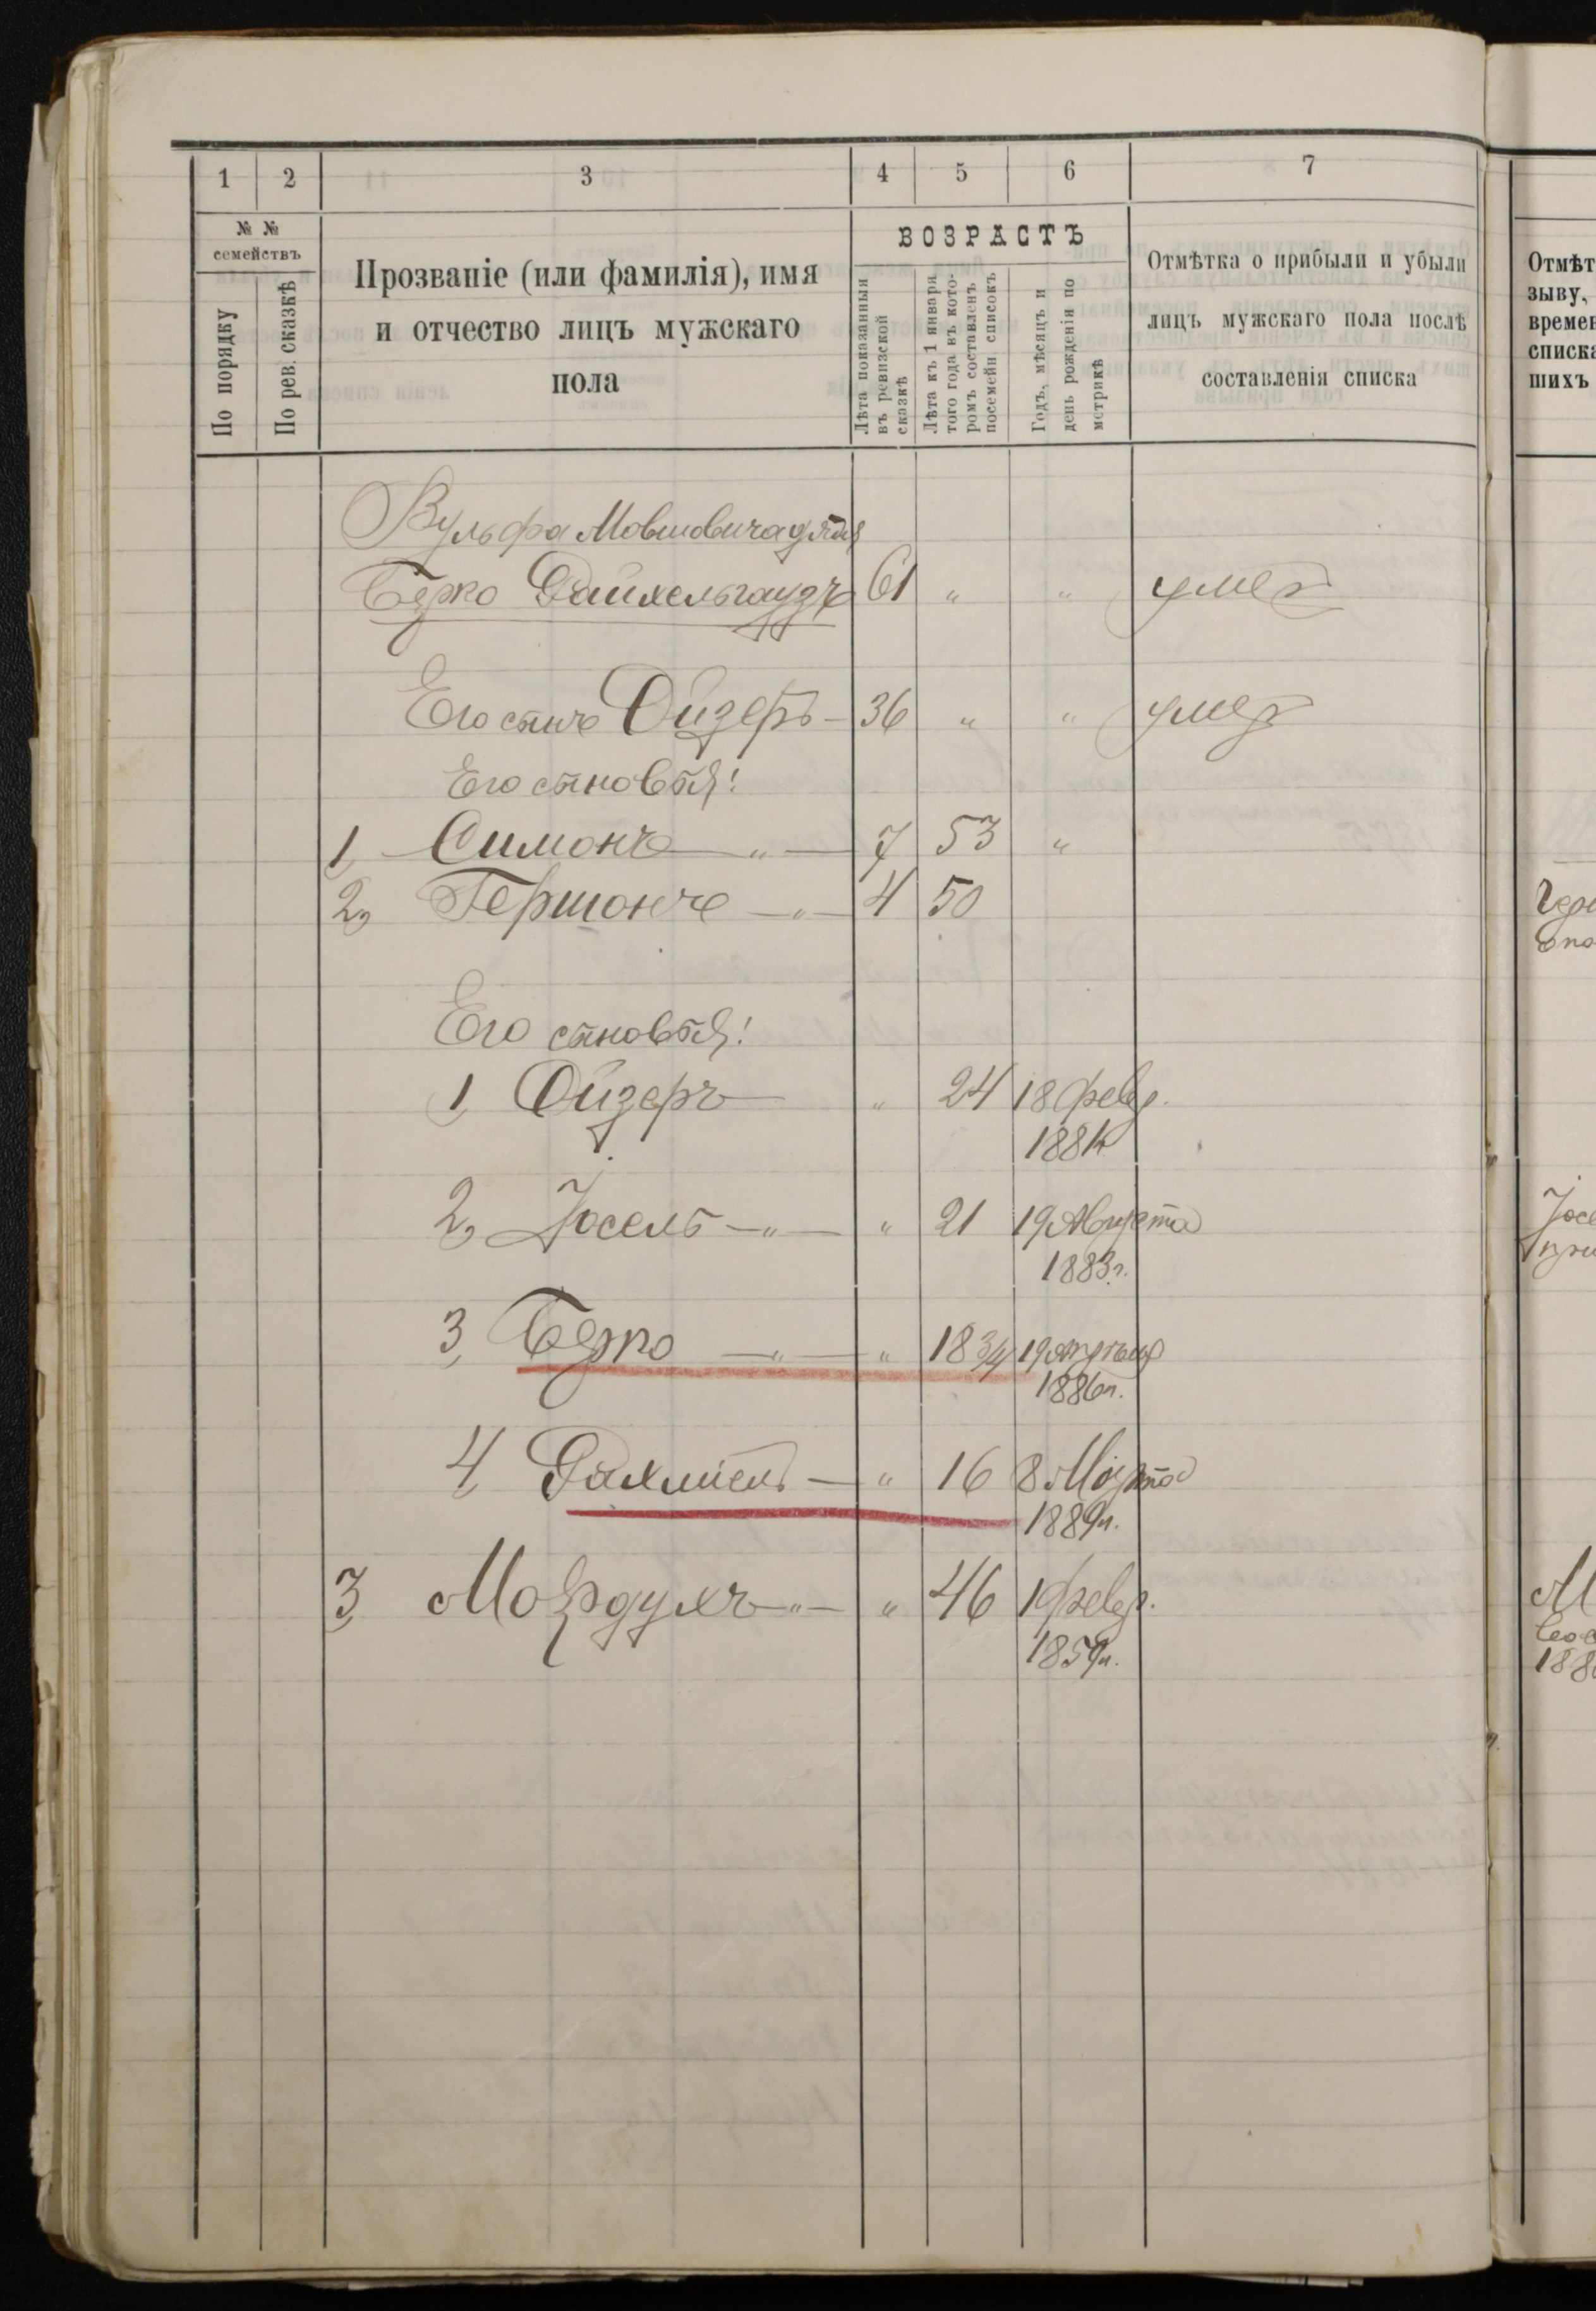 1 2 3 4 5 6 7
№ № семействъ
По порядку
По рев. сказкѣ
Прозваніе (или фамилія), имя
и отчество лицъ мужскаго
пола
ВОЗРАСТЪ
Лѣта показанныя
въ ревизской
сказкѣ
Лѣта къ 1 января
того года въ кото-
ромъ составленъ
посемейн. списокъ
Годъ, мѣсяцъ и
день рожденія по
метрикѣ
Отмѣтка о прибыли и убыли
лицъ мужскаго пола послѣ
составленія списка
Отмѣт
зыву,
времен
списка
шихъ
Вульфа Мовшовича дядя
Берко Райхельгаузъ 61 " " умер
Его сынъ Ойзеръ - 36 " " умер
Его сыновья:
1, Симонъ " 7 53 "
2, Гершонъ " 4 50
Его сыновья:
1, Ойзеръ " 24 18 февр.
1881г.
2, Іосель " " 21 19 Августа
1883г.
3, Берко " " 18 3/4 19
1886г.
4, Рахміель " 16 8 Марта
1889г.
3, Мордухъ " " 46 1 февр.
1859г.